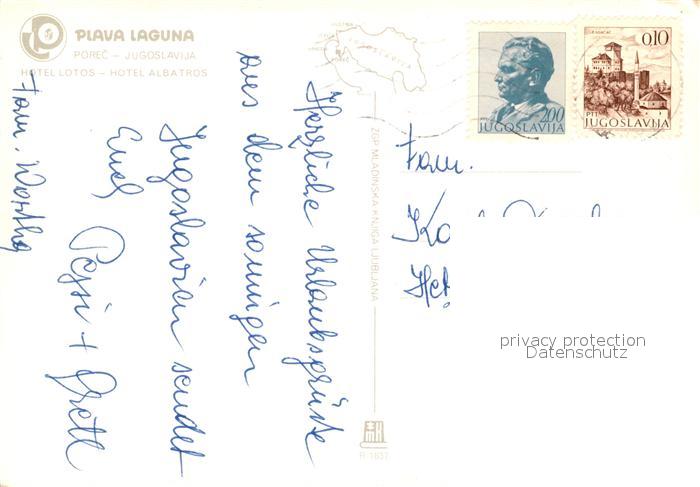 PLAVA LAGUNA
POREČ – JUGOSLAVIJA
HOTEL LOTOS – HOTEL ALBATROS
JUGOSLAVIJA
2.00
JUGOSLAVIJA
GRADAČAC
0.10
PTT
JUGOSLAVIJA
Herzliche Urlaubsgrüße
aus dem sonnigen
Jugoslavien sendet
Euch
+ Gretl
Fam.
ZGP MLADINSKA KNJIGA LJUBLJANA
Fam.
Ko
privacy protection
Datenschutz